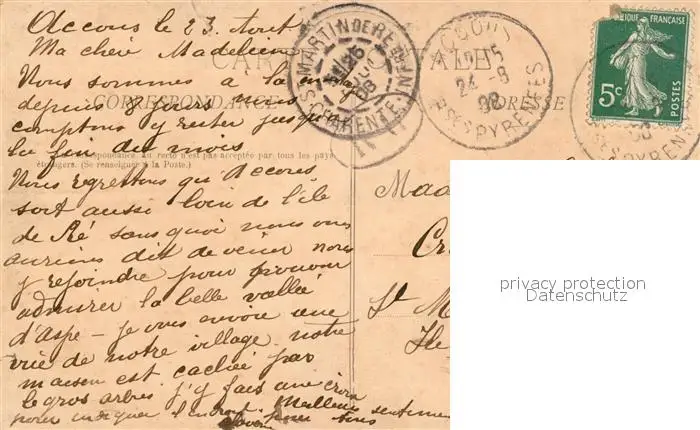 Accous le 23 Aout
Ma chère Madeleine
CARTE POSTALE
Nous sommes à la
depuis 8 jours nous
CORRESPONDANCE
ADRESSE
comptons y rester jusqu'à
la fin du mois
correspondance au recto n'est pas acceptée par tous les pays
étrangers. (Se renseigner à la Poste.)
Nous regrettons qu'Accous
soit aussi loin de l'île
de Ré sans quoi nous vous
aurions dit de venir nous
y rejoindre pour pouvoir
admirer la belle vallée
d'Aspe - je vous envoie une
vue de notre village. notre
maison est cachée par
le gros arbres j'y fais une croix
pour indiquer l'endroit. Meilleurs sentiments
pour tous
ST MARTIN DE RE
25
08
CHARENTE-INF
ACCOUS
24 -8
08
BSES PYRENEES
RÉPUBLIQUE FRANÇAISE
5c
POSTES
BSES PYRENEES
Mad
Cr
St M
Ile
privacy protection
Datenschutz